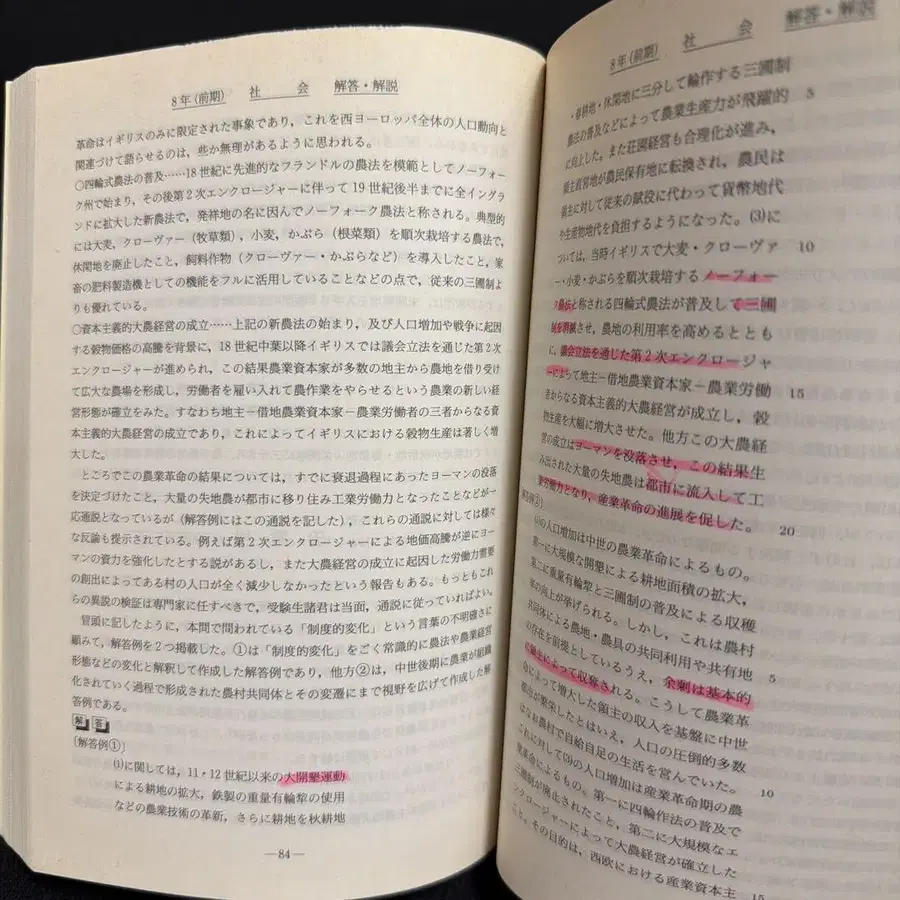 8年(前期) 社 会 解答・解説
革命はイギリスのみに限定された事象であり，これを西ヨーロッパ全体の人口動向と
関連づけて語らせるのは，些か無理があるように思われる。
○四輪式農法の普及……18世紀に先進的なフランドルの農法を模範としてノーフォー
ク州で始まり，その後第2次エンクロージャーに伴って19世紀後半までに全イングラ
ンドに拡大した新農法で，発祥地の名に因んでノーフォーク農法と称される。典型的
には大麦，クローヴァー（牧草類），小麦，かぶら（根菜類）を順次栽培する農法で，
休閑地を廃止したこと，飼料作物（クローヴァー・かぶらなど）を導入したこと，家
畜の肥料製造機としての機能をフルに活用していることなどの点で，従来の三圃制よ
りも優れている。
○資本主義的大農経営の成立……上記の新農法の始まり，及び人口増加や戦争に起因
する穀物価格の高騰を背景に，18世紀中葉以降イギリスでは議会立法を通じた第2次
エンクロージャーが進められ，この結果農業資本家が多数の地主から農地を借り受け
て広大な農場を形成し，労働者を雇い入れて農作業をやらせるという農業の新しい経
営形態が確立をみた。すなわち地主－借地農業資本家－農業労働者の三者からなる資
本主義的大農経営の成立であり，これによってイギリスにおける穀物生産は著しく増
大した。
ところでこの農業革命の結果については，すでに衰退過程にあったヨーマンの没落
を決定づけたこと，大量の失地農が都市に移り住み工業労働力となったことなどが一
応通説となっているが（解答例にはこの通説を記した），これらの通説に対しては様々
な反論も提示されている。例えば第2次エンクロージャーによる地価高騰が逆にヨー
マンの資力を強化したとする説があるし，また大農経営の成立に起因した労働力需要
の創出によってある村の人口が全く減少しなかったという報告もある。もっともこれ
らの異説の検証は専門家に任すべきで，受験生諸君は当面，通説に従っていればよい。
冒頭に記したように，本問で問われている「制度的変化」という言葉の不明確さに
顧みて，解答例を2つ掲載した。①は「制度的変化」をごく常識的に農法や農業経営
形態などの変化と解釈して作成した解答例であり，他方②は，中世後期に農業が組織
化されていく過程で形成された農村共同体とその変遷にまで視野を広げて作成した解
答例である。
解 答
〔解答例①〕
⑴に関しては，11・12世紀以来の大開墾運動
による耕地の拡大，鉄製の重量有輪犂の使用
などの農業技術の革新，さらに耕地を秋耕地
―84―
8年(前期) 社 会 解答・解説
・春耕地・休閑地に三分して輪作する三圃制
農法の普及などによって農業生産力が飛躍的 5
に向上した。また荘園経営も合理化が進み，
領主直営地が農民保有地に転換され，農民は
領主に対して従来の賦役に代わって貨幣地代
や生産物地代を負担するようになった。⑶に
ついては，当時イギリスで大麦・クローヴァ 10
ー・小麦・かぶらを順次栽培するノーフォー
ク農法と称される四輪式農法が普及して三圃
制を葬らせ，農地の利用率を高めるととも
に，議会立法を通じた第2次エンクロージャ
ーによって地主－借地農業資本家－農業労働 15
者からなる資本主義的大農経営が成立し，穀
物生産を大幅に増大させた。他方この大農経
営の成立はヨーマンを没落させ，この結果生
み出された大量の失地農は都市に流入して工
業労働力となり，産業革命の進展を促した。 20
解答例②
⑴の人口増加は中世の農業革命によるもの。
第一に大規模な開墾による耕地面積の拡大，
第二に重量有輪犂と三圃制の普及による収穫
率の向上が挙げられる。しかし，これは農村
共同体による農地・農具の共同利用や共有地
の存在を前提としているうえ，余剰は基本的 5
に領主によって収奪される。こうして農業革
命によって増大した領主の収入を基盤に中世
都市が繁栄したとはいえ，人口の圧倒的多数
はなお農村で自給自足の生活を営んでいた。
これに対して⑶の人口増加は産業革命期の農 10
業革命によるもの。第一に四輪作法の普及で
三圃制が廃止されたこと，第二に大規模なエ
ンクロージャーによって大農経営が確立した
こと。その目的は，西欧における産業資本主 15